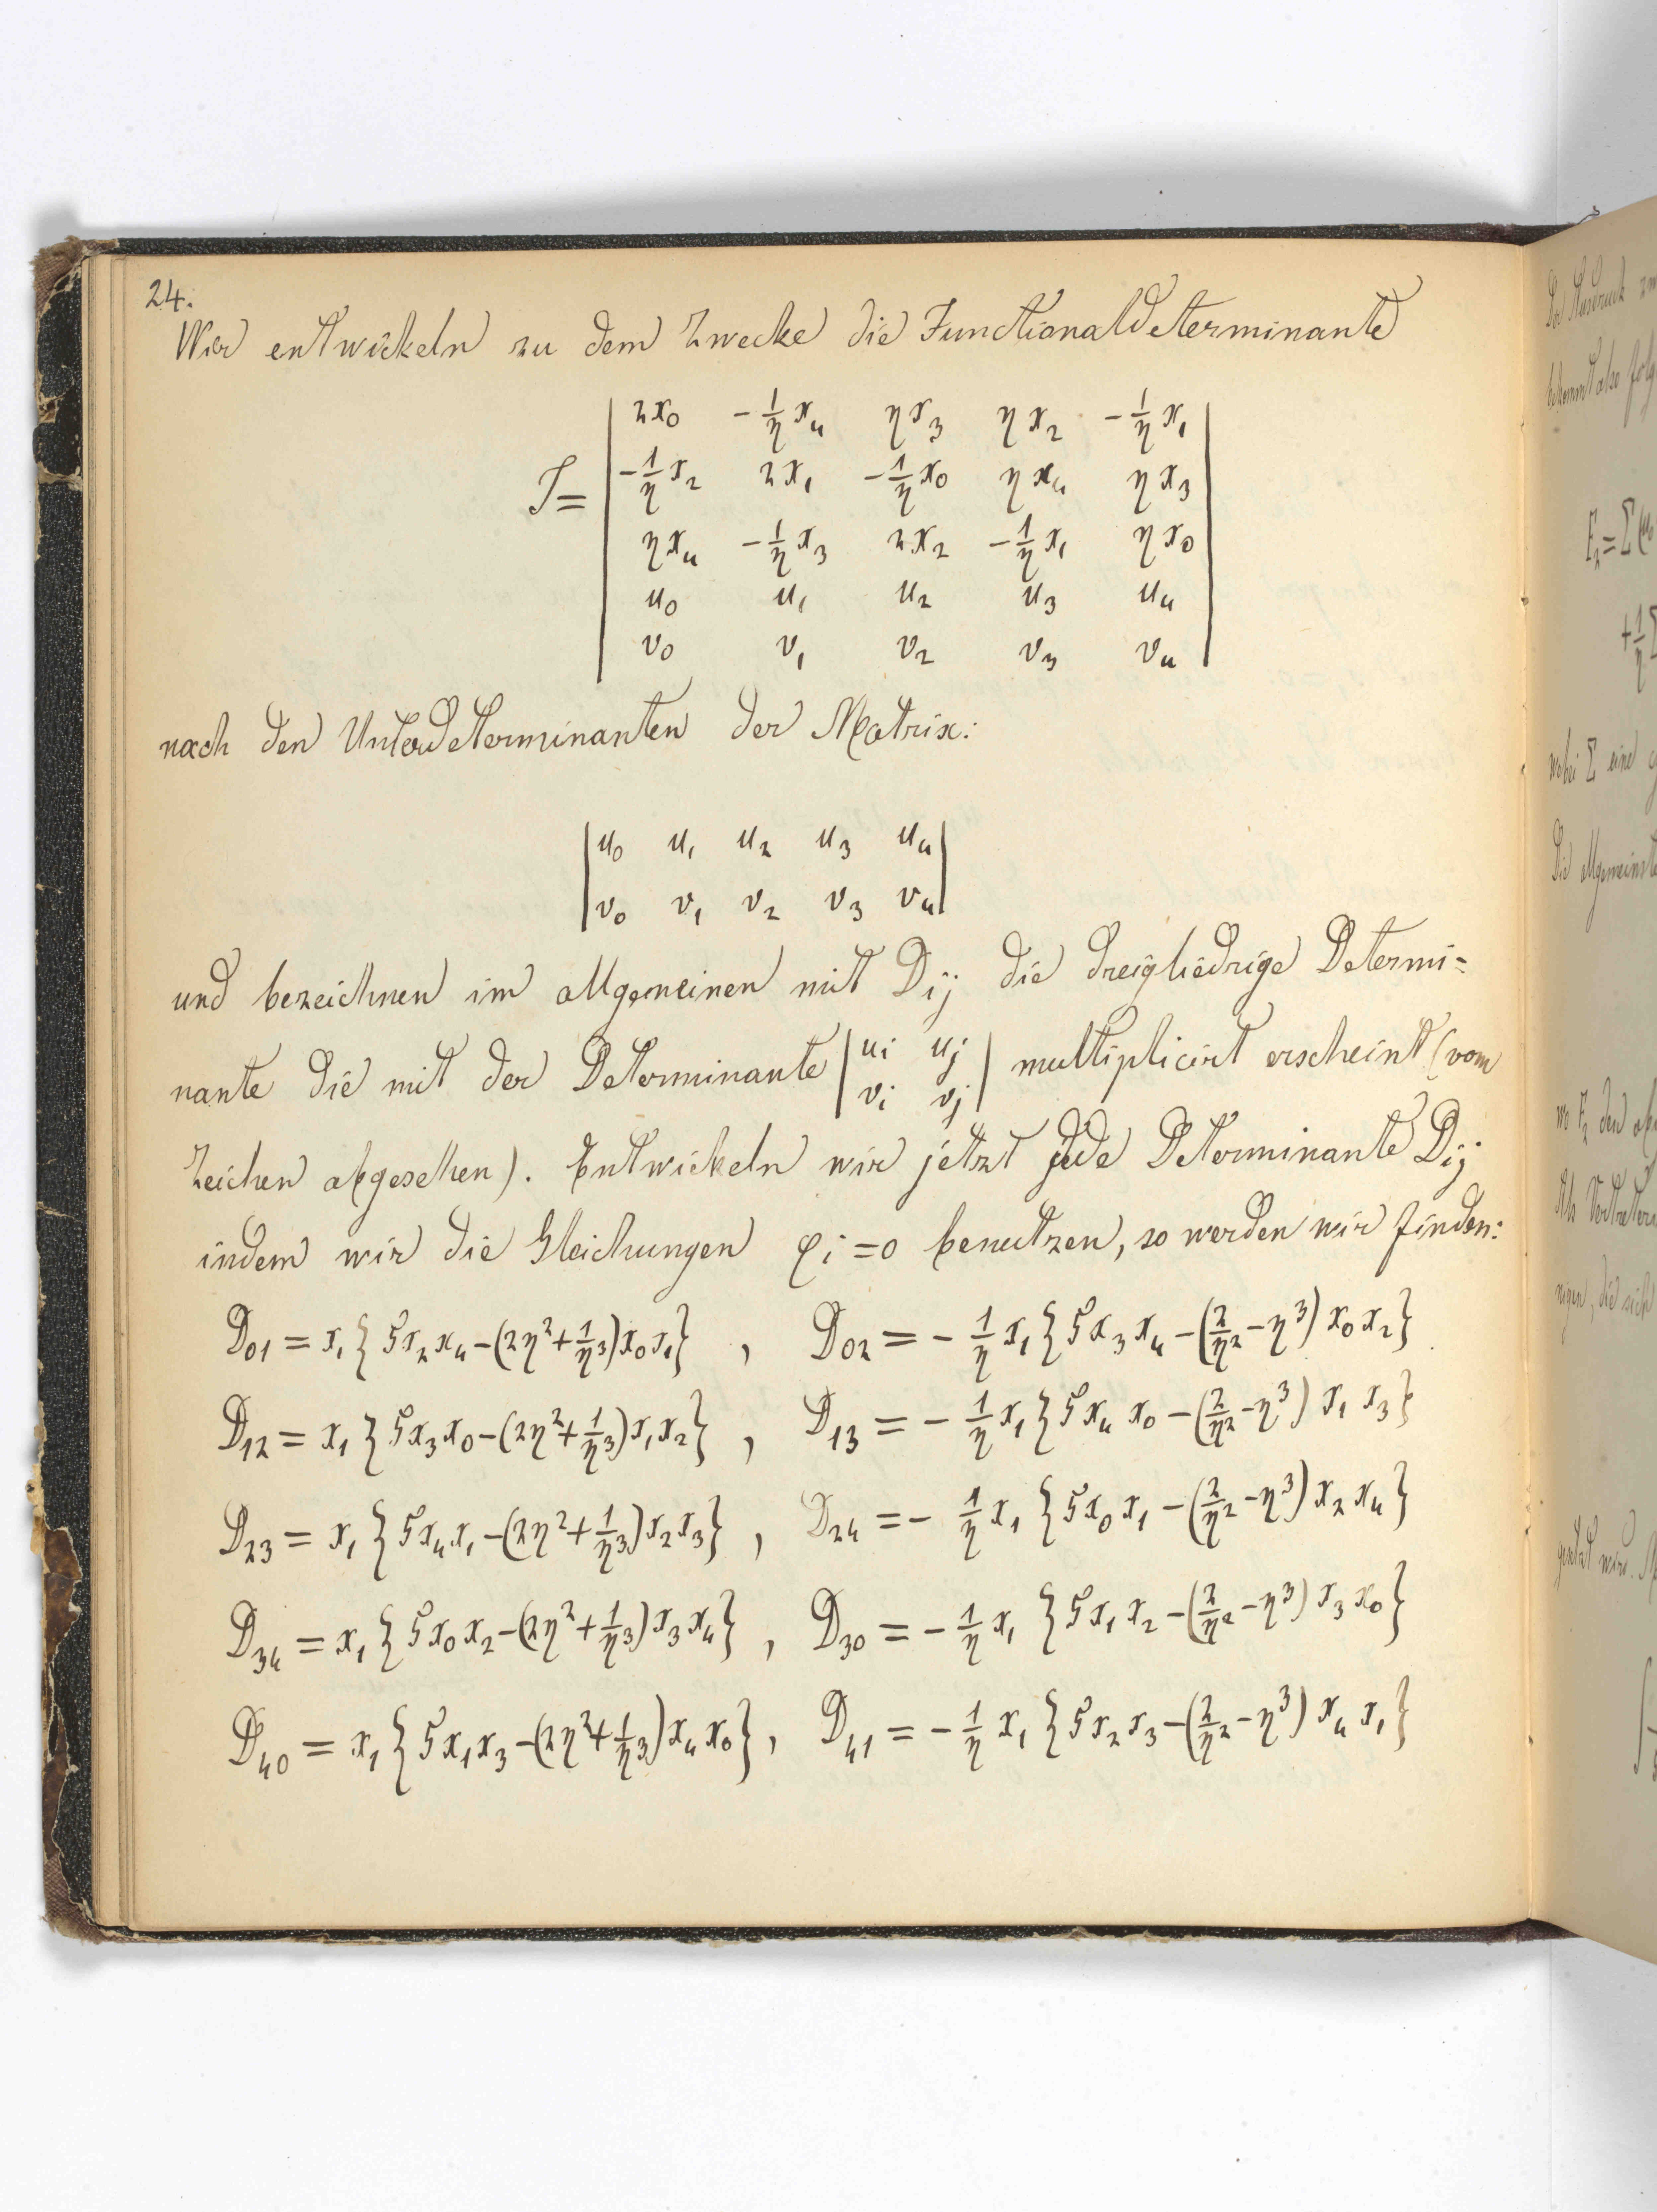 24.
Wir entwickeln zu dem Zwecke die Functionaldeterminante
J = | 2x₀ −1/η x₄ ηx₃ ηx₂ −1/η x₁ |
| −1/η x₂ 2x₁ −1/η x₀ ηx₄ ηx₃ |
| ηx₄ −1/η x₃ 2x₂ −1/η x₁ ηx₀ |
| u₀ u₁ u₂ u₃ u₄ |
| v₀ v₁ v₂ v₃ v₄ |
nach den Unterdeterminanten der Matrix:
| u₀ u₁ u₂ u₃ u₄ |
| v₀ v₁ v₂ v₃ v₄ |
und bezeichnen im allgemeinen mit Dij die dreigliedrige Determi=
nante die mit der Determinante | ui uj vi vj | multiplicirt erscheint (vom
Zeichen abgesehen). Entwickeln wir jetzt jede Determinante Dij
indem wir die Gleichungen φi = 0 benutzen, so werden wir finden:
D₀₁ = x₁{5x₂x₄−(2η²+1/η³)x₀x₁} , D₀₂ = −1/η x₁{5x₃x₄−(2/η²−η³)x₀x₂}
D₁₂ = x₁{5x₃x₀−(2η²+1/η³)x₁x₂} , D₁₃ = −1/η x₁{5x₄x₀−(2/η²−η³)x₁x₃}
D₂₃ = x₁{5x₄x₁−(2η²+1/η³)x₂x₃} , D₂₄ = −1/η x₁{5x₀x₁−(2/η²−η³)x₂x₄}
D₃₄ = x₁{5x₀x₂−(2η²+1/η³)x₃x₄} , D₃₀ = −1/η x₁{5x₁x₂−(2/η²−η³)x₃x₀}
D₄₀ = x₁{5x₁x₃−(2η²+1/η³)x₄x₀} , D₄₁ = −1/η x₁{5x₂x₃−(2/η²−η³)x₄x₁}